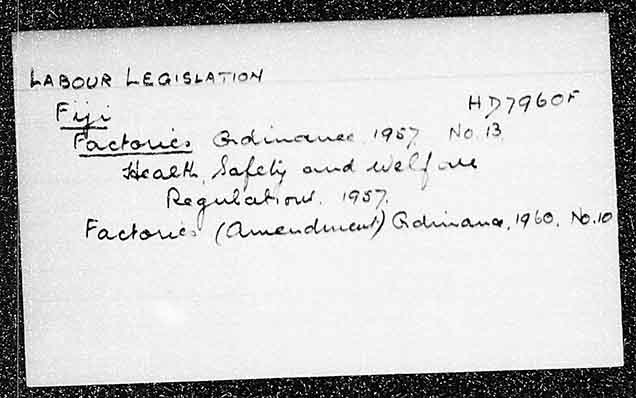 LABOUR LEGISLATION
Fiji HD7960F
Factories Ordinance 1957 No. 13
Health, Safety and Welfare
Regulations. 1957.
Factories (Amendment) Ordinance, 1960. No. 10